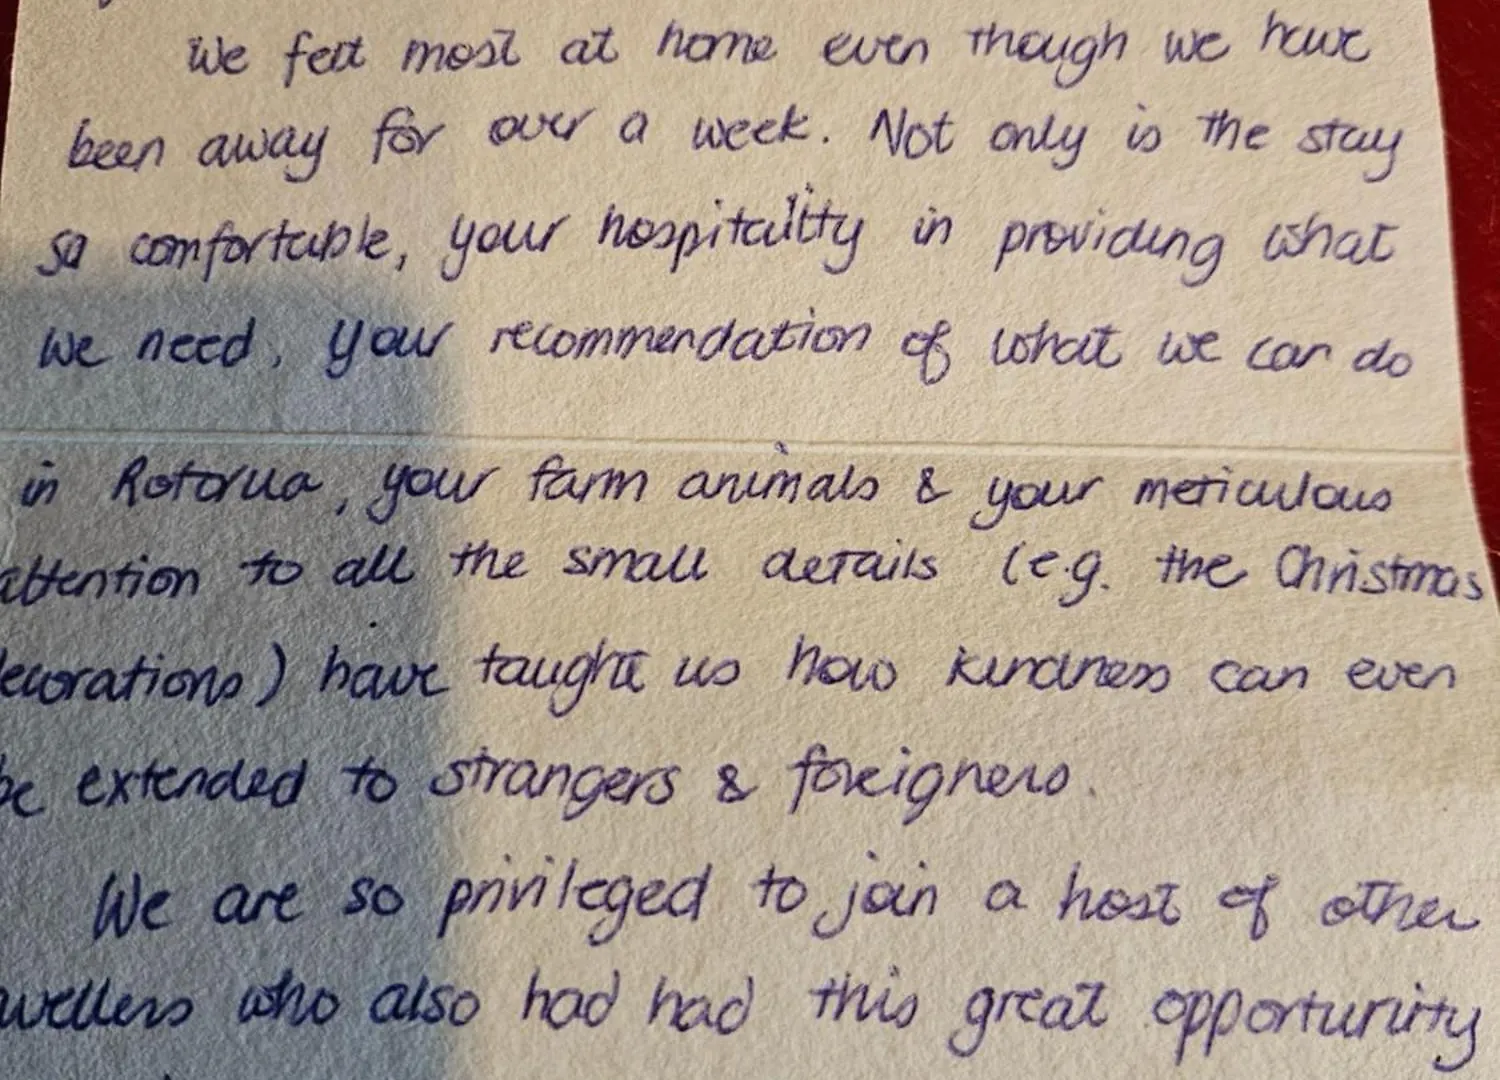 We felt most at home even though we have
been away for over a week. Not only is the stay
so comfortable, your hospitality in providing what
we need, your recommendation of what we can do
in Rotorua, your farm animals & your meticulous
attention to all the small details (e.g. the Christmas
decorations) have taught us how kindness can even
be extended to strangers & foreigners.
We are so privileged to join a host of other
who also had had this great opportunity